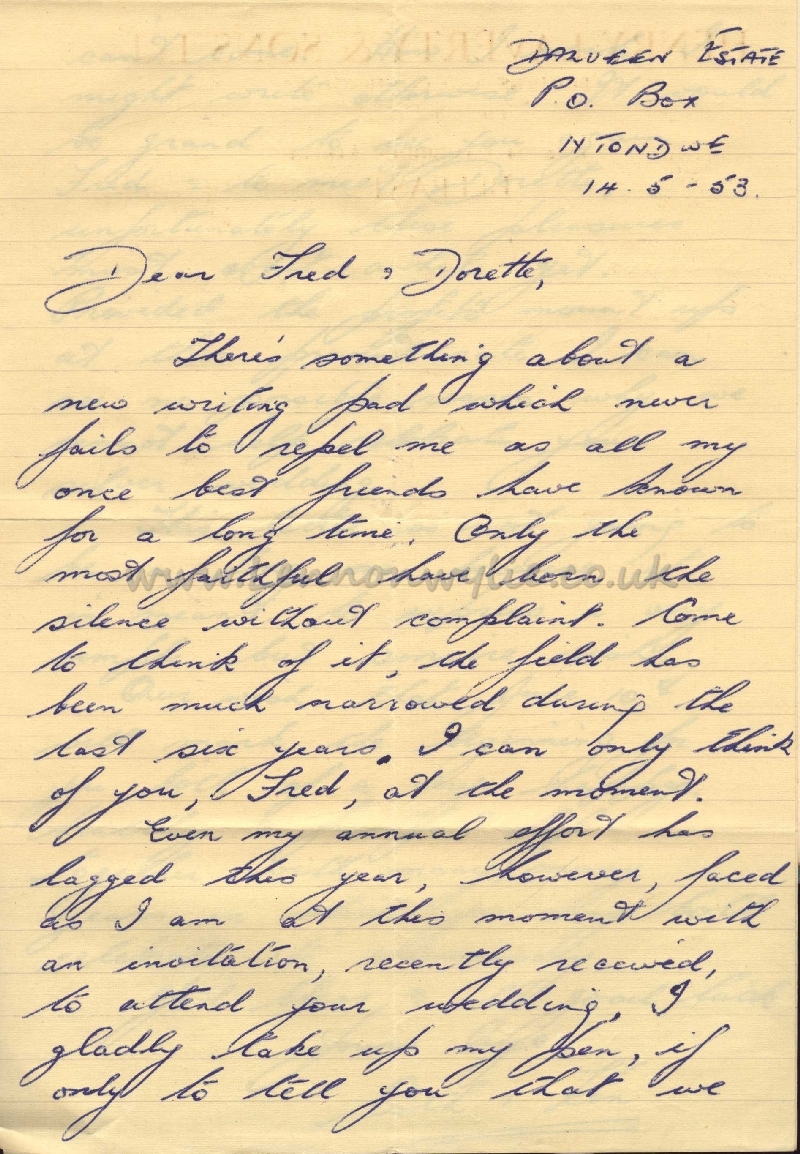 DARVEEN ESTATE
P.O. BOX
NTONDWE
14.5-53.
Dear Fred & Dorette,
There's something about a
new writing pad which never
fails to repel me as all my
once best friends have known
for a long time. Only the
most faithful have born the
silence without complaint. Come
to think of it, the field has
been much narrowed during the
last six years. I can only think
of you, Fred, at the moment.
Even my annual effort has
lagged this year, however, faced
as I am at this moment with
an invitation, recently received,
to attend your wedding, I
gladly take up my pen, if
only to tell you that we